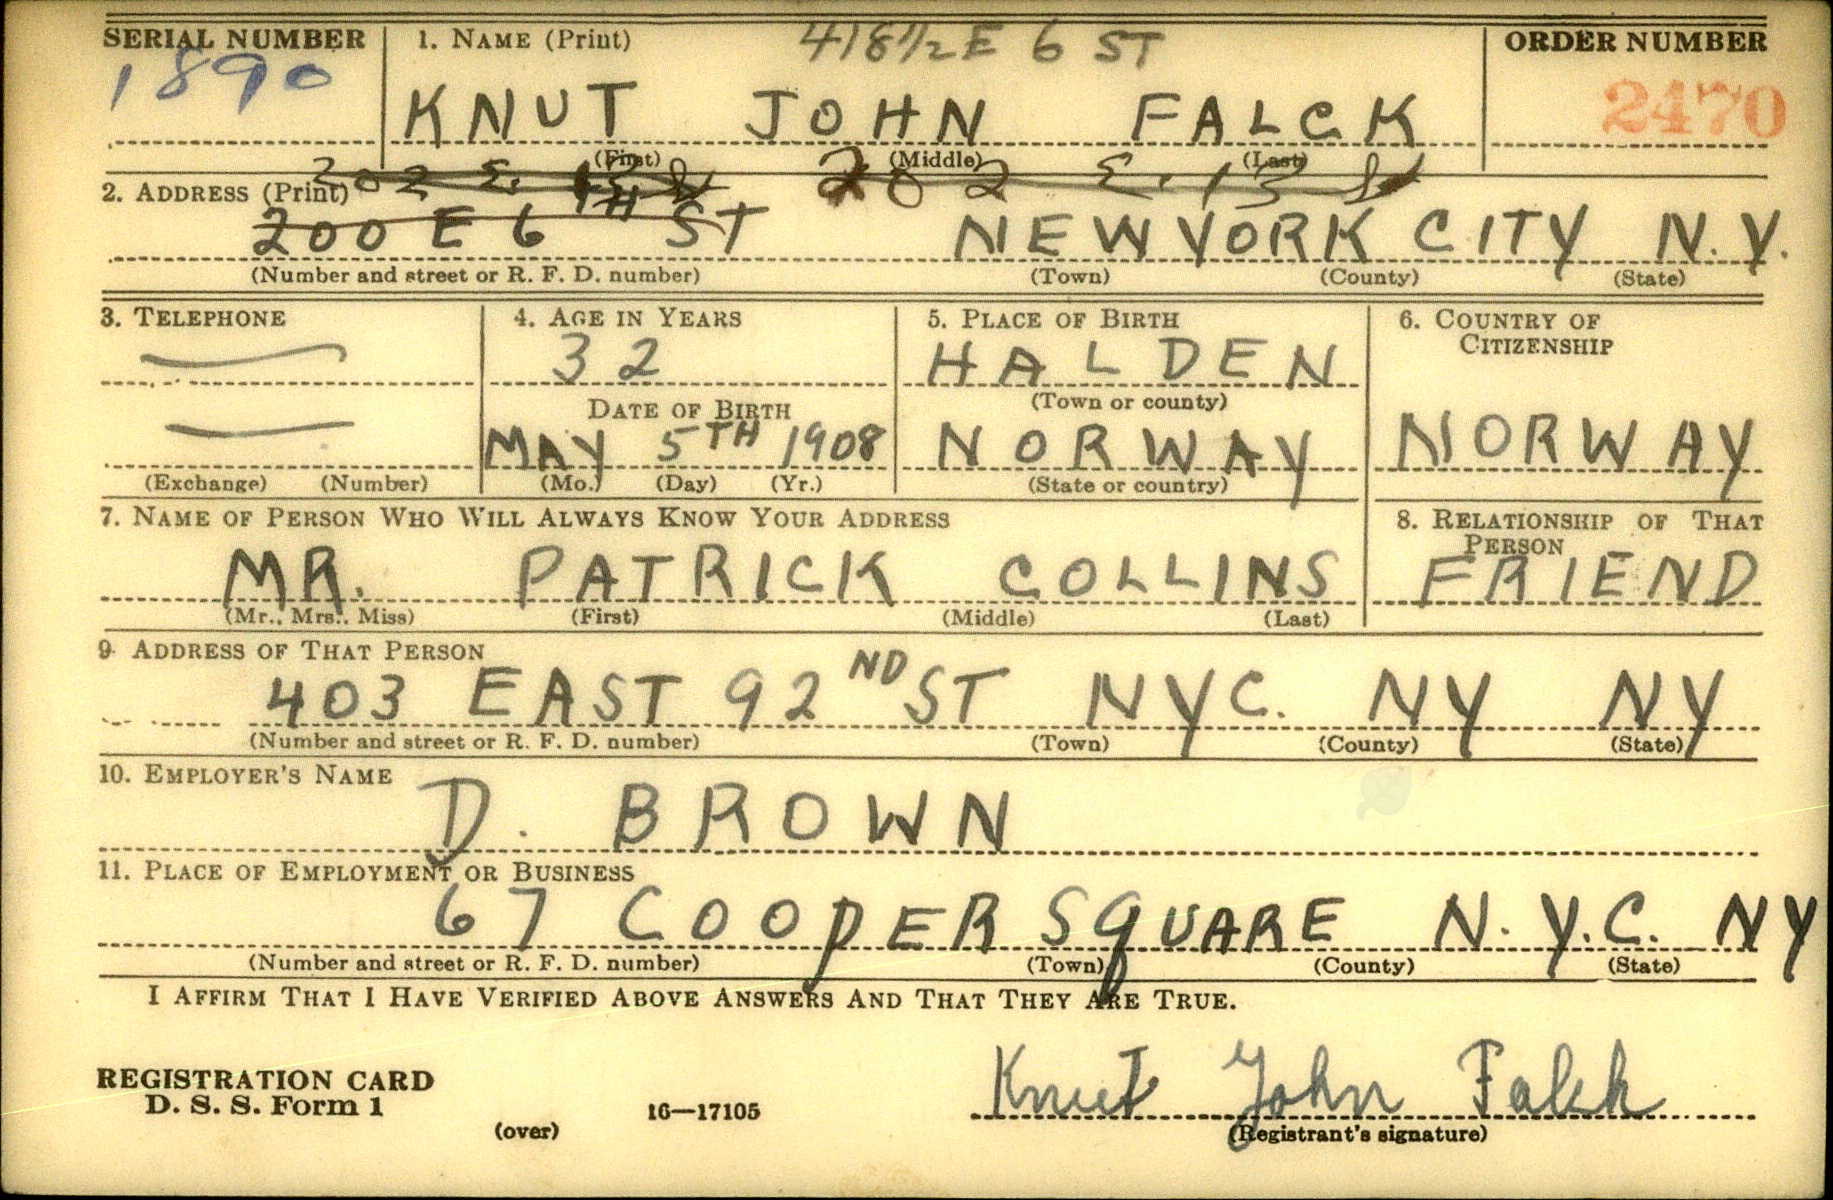 SERIAL NUMBER 1. NAME (Print) 418 1/2 E 6 ST ORDER NUMBER
1890 KNUT JOHN FALCK 2470
(First) (Middle) (Last)
202 E. 13 202 E. 13
2. ADDRESS (Print)
200 E 6TH ST NEW YORK CITY N.Y.
(Number and street or R. F. D. number) (Town) (County) (State)
3. TELEPHONE 4. AGE IN YEARS 5. PLACE OF BIRTH 6. COUNTRY OF CITIZENSHIP
32 HALDEN
(Town or county)
DATE OF BIRTH
MAY 5TH 1908 NORWAY NORWAY
(Exchange) (Number) (Mo.) (Day) (Yr.) (State or country)
7. NAME OF PERSON WHO WILL ALWAYS KNOW YOUR ADDRESS 8. RELATIONSHIP OF THAT PERSON
MR. PATRICK COLLINS FRIEND
(Mr., Mrs., Miss) (First) (Middle) (Last)
9. ADDRESS OF THAT PERSON
403 EAST 92ND ST NYC. NY NY
(Number and street or R. F. D. number) (Town) (County) (State)
10. EMPLOYER'S NAME
D. BROWN
11. PLACE OF EMPLOYMENT OR BUSINESS
67 COOPER SQUARE N.Y.C. NY
(Number and street or R. F. D. number) (Town) (County) (State)
I AFFIRM THAT I HAVE VERIFIED ABOVE ANSWERS AND THAT THEY ARE TRUE.
Knut John Falck
REGISTRATION CARD
D. S. S. Form 1 16—17105
(over) (Registrant's signature)